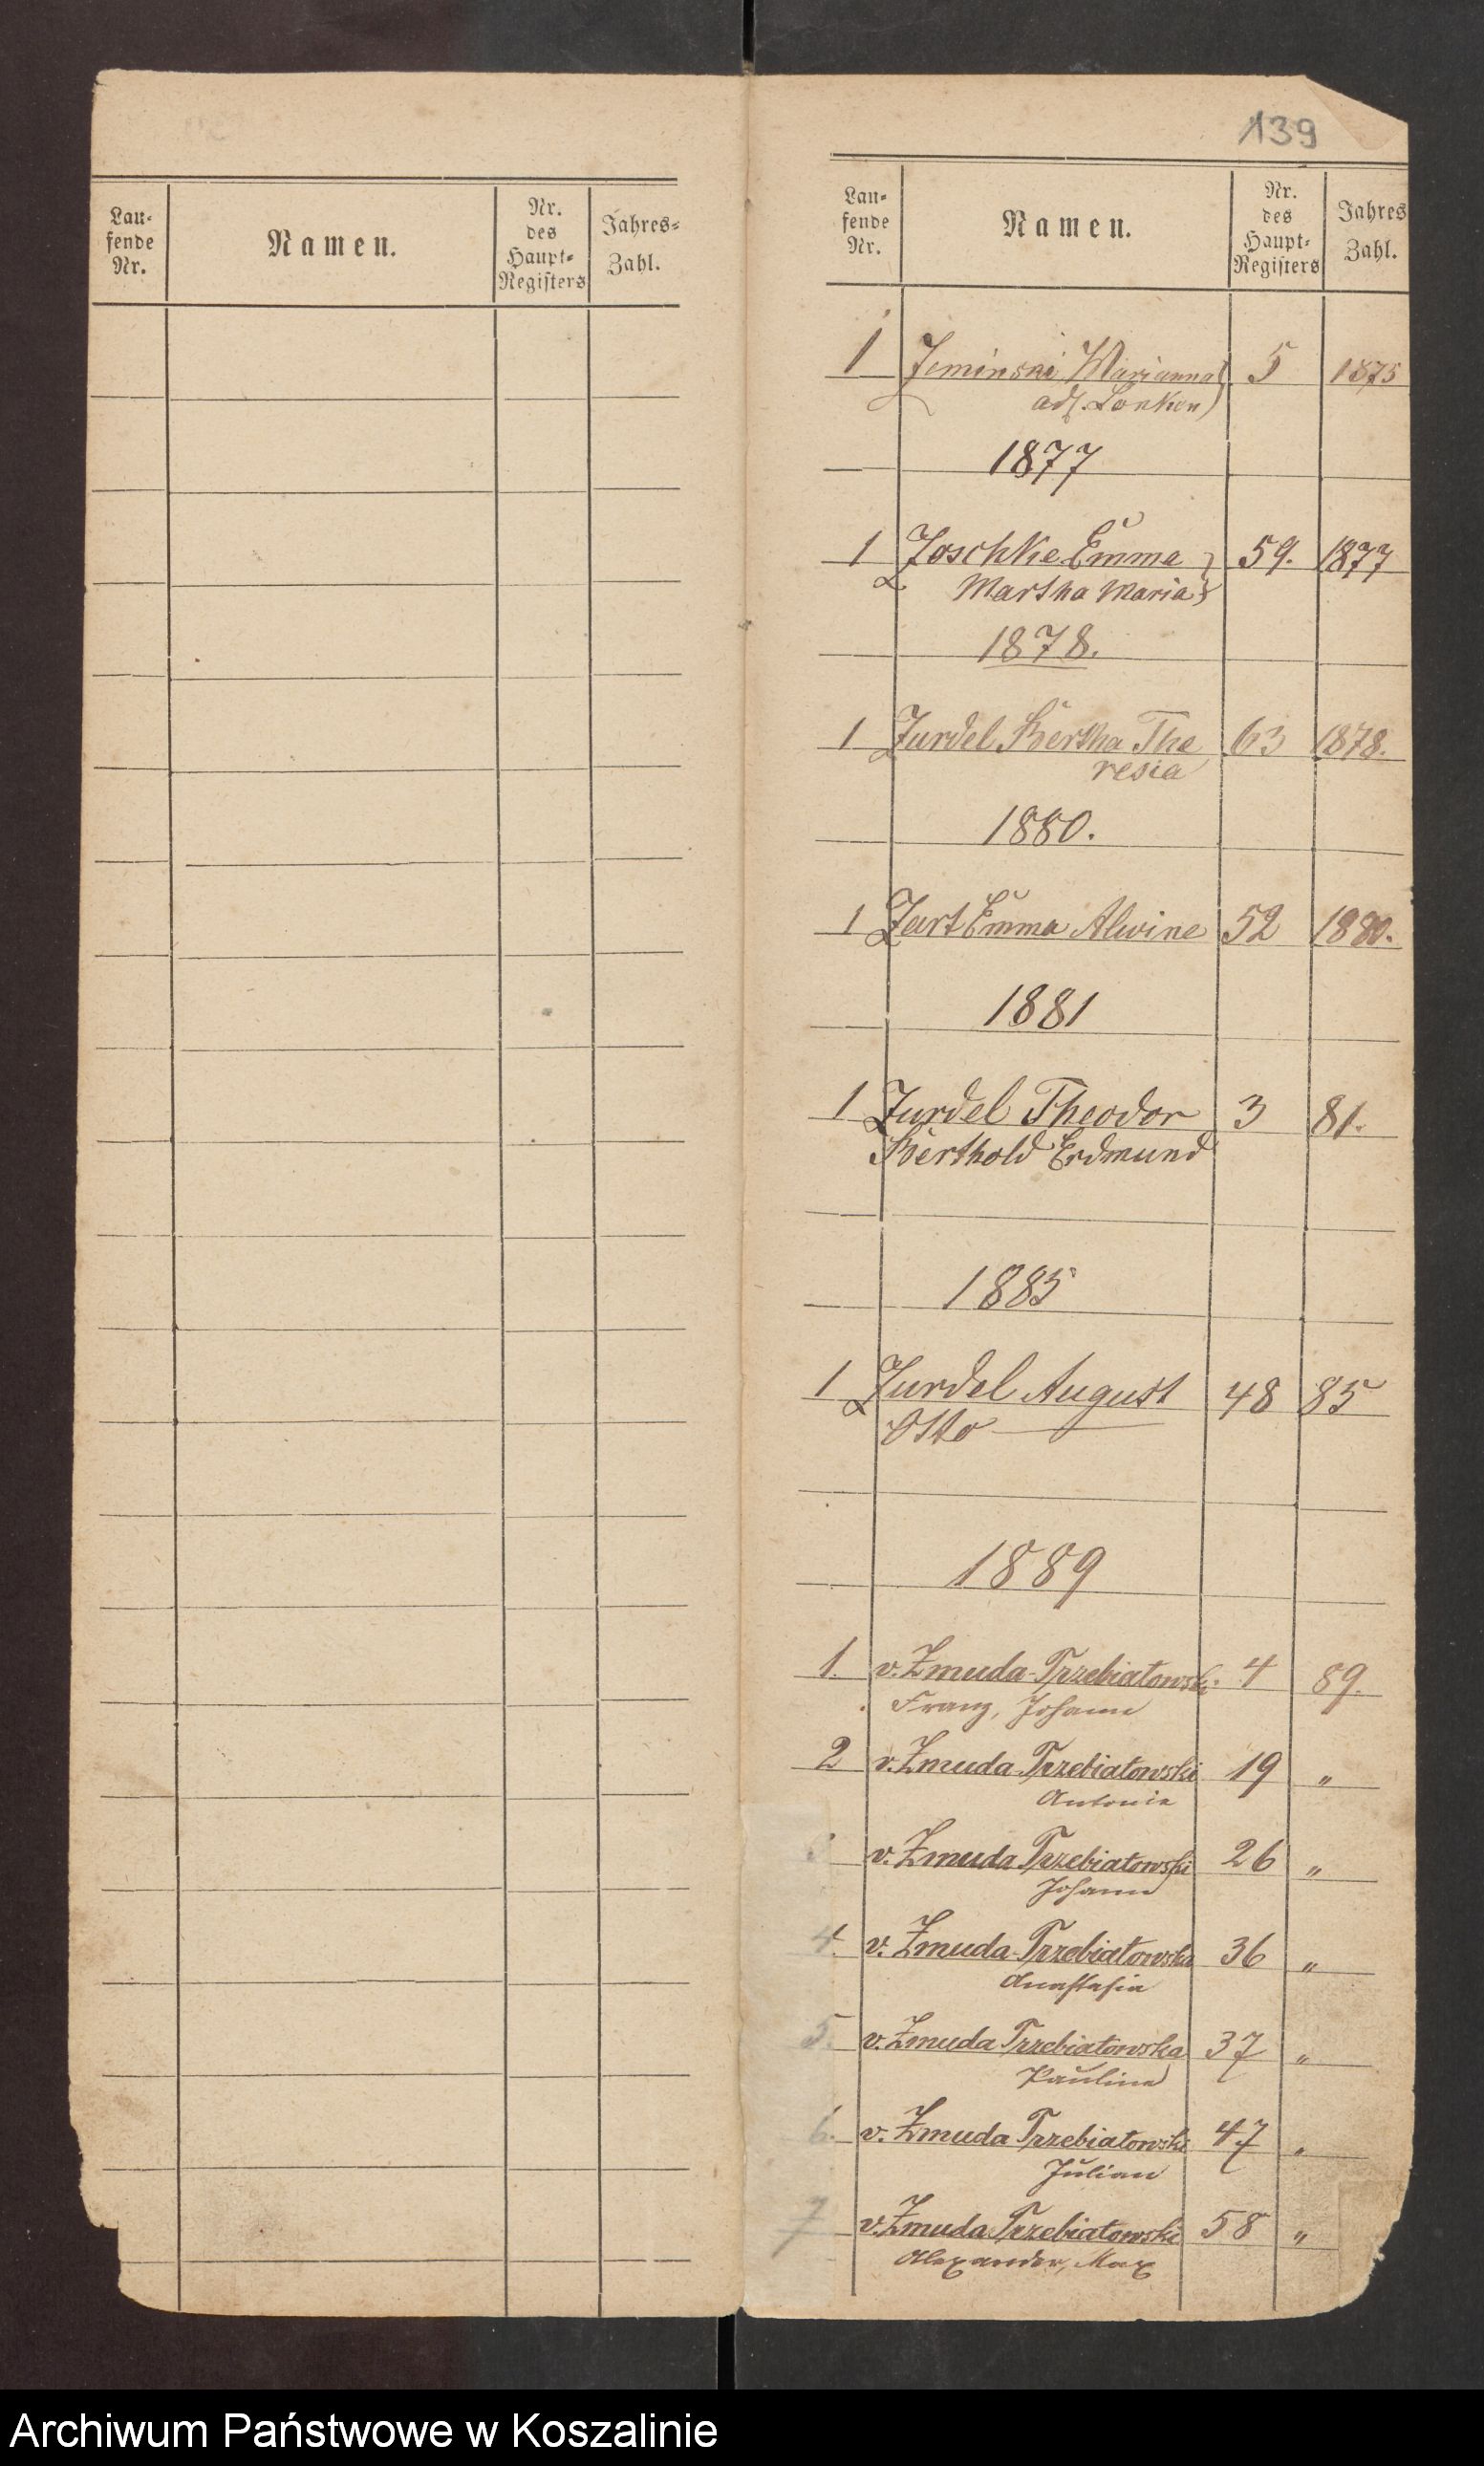 139
Lau-
fende
Nr.
Namen.
Nr.
des
Haupt-
Registers
Jahres-
Zahl.
Lau-
fende
Nr.
Namen.
Nr.
des
Haupt-
Registers
Jahres
Zahl.
1 Zeminski Marianna 5 1875
adl. Lonken)
1877
1 Zoschke Emma 59. 1877
Martha Maria
1878.
1 Zurdel Bertha The 63 1878.
resia
1880.
1 Zart Emma Alwine 52 1880.
1881
1 Zurdel Theodor 3 81.
Berthold Erdmund
1885
1 Zurdel August 48 85
Otto
1889
1. v. Zmuda-Trzebiatowski 4 89.
Franz, Johann
2 v. Zmuda Trzebiatowski 19 "
Antonie
3. v. Zmuda Trzebiatowski 26 "
Johann
4. v. Zmuda-Trzebiatowska 36 "
Anastasia
5. v. Zmuda Trzebiatowska 37 "
Pauline
6. v. Zmuda Trzebiatowski 47 "
Julian
7 v. Zmuda Trzebiatowski 58 "
Alexander, Max
Archiwum Państwowe w Koszalinie